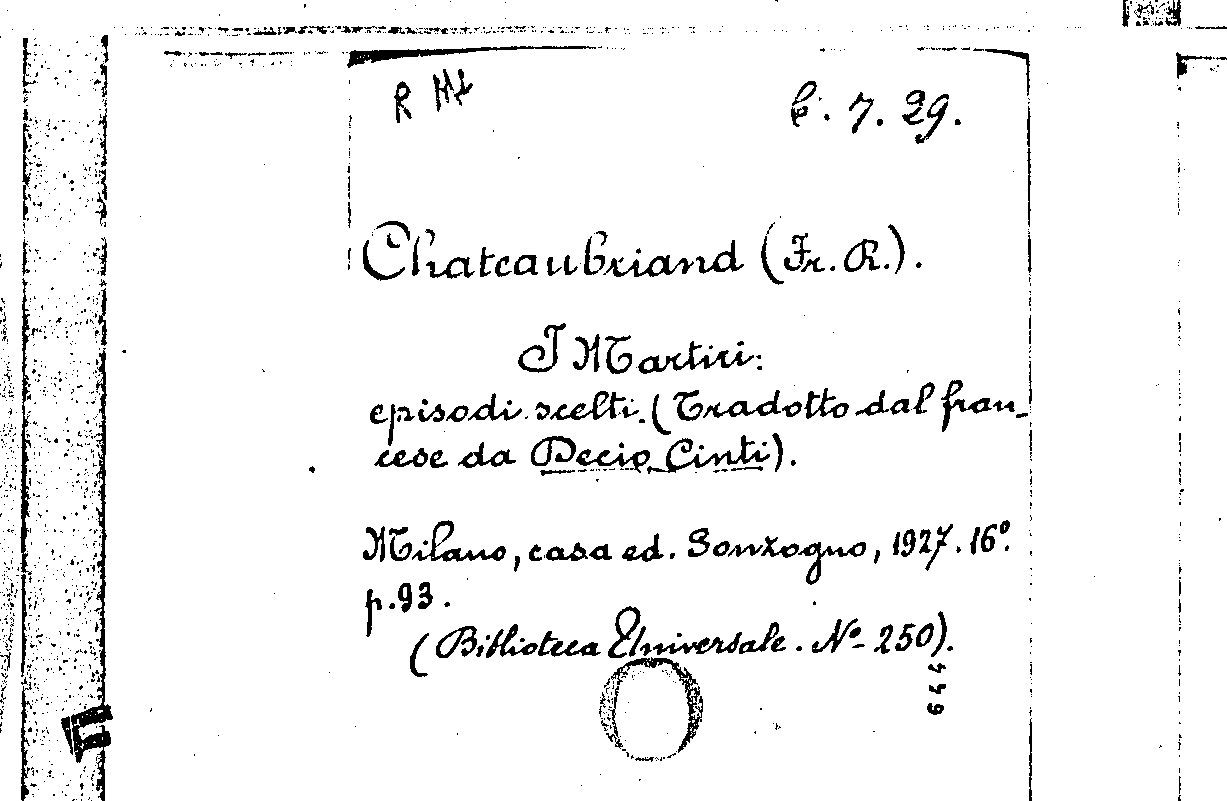 R
C. 7. 29.
Chateaubriand (Fr. R.).
I Martiri:
episodi scelti. (Tradotto dal fran-
cese da Decio Cinti).
Milano, casa ed. Sonzogno, 1927. 16º.
p. 93.
(Biblioteca Universale. Nº 250).
644